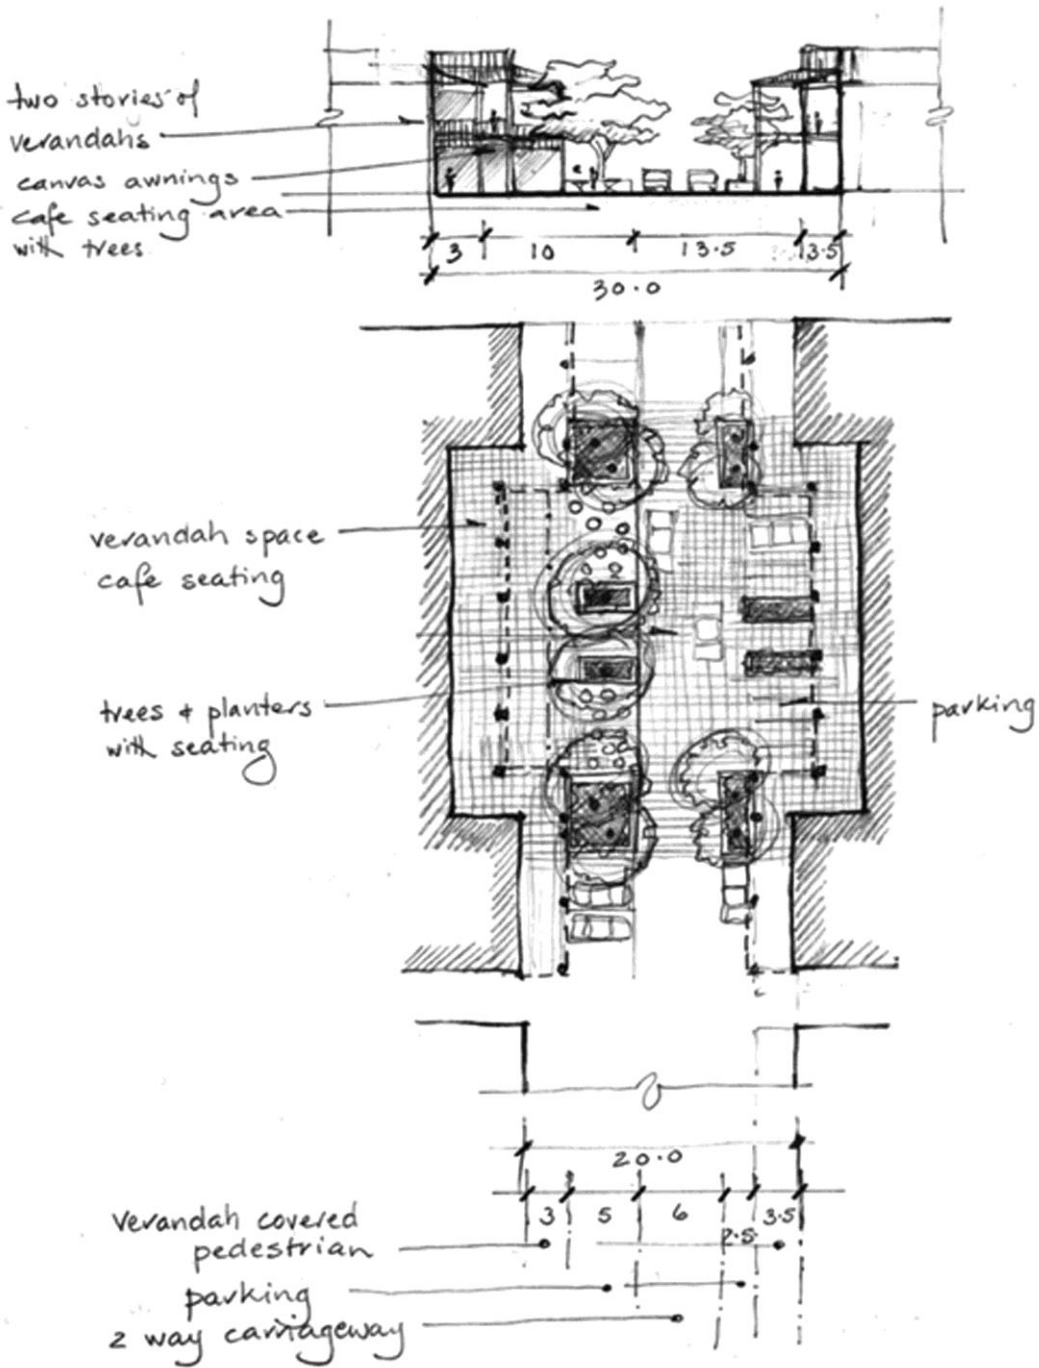 two stories of
verandahs
canvas awnings
cafe seating area
with trees
3 10 13.5 3.5
30.0
verandah space
cafe seating
trees + planters
with seating
parking
20.0
3 5 6 2.5 3.5
Verandah covered
pedestrian
parking
2 way carriageway